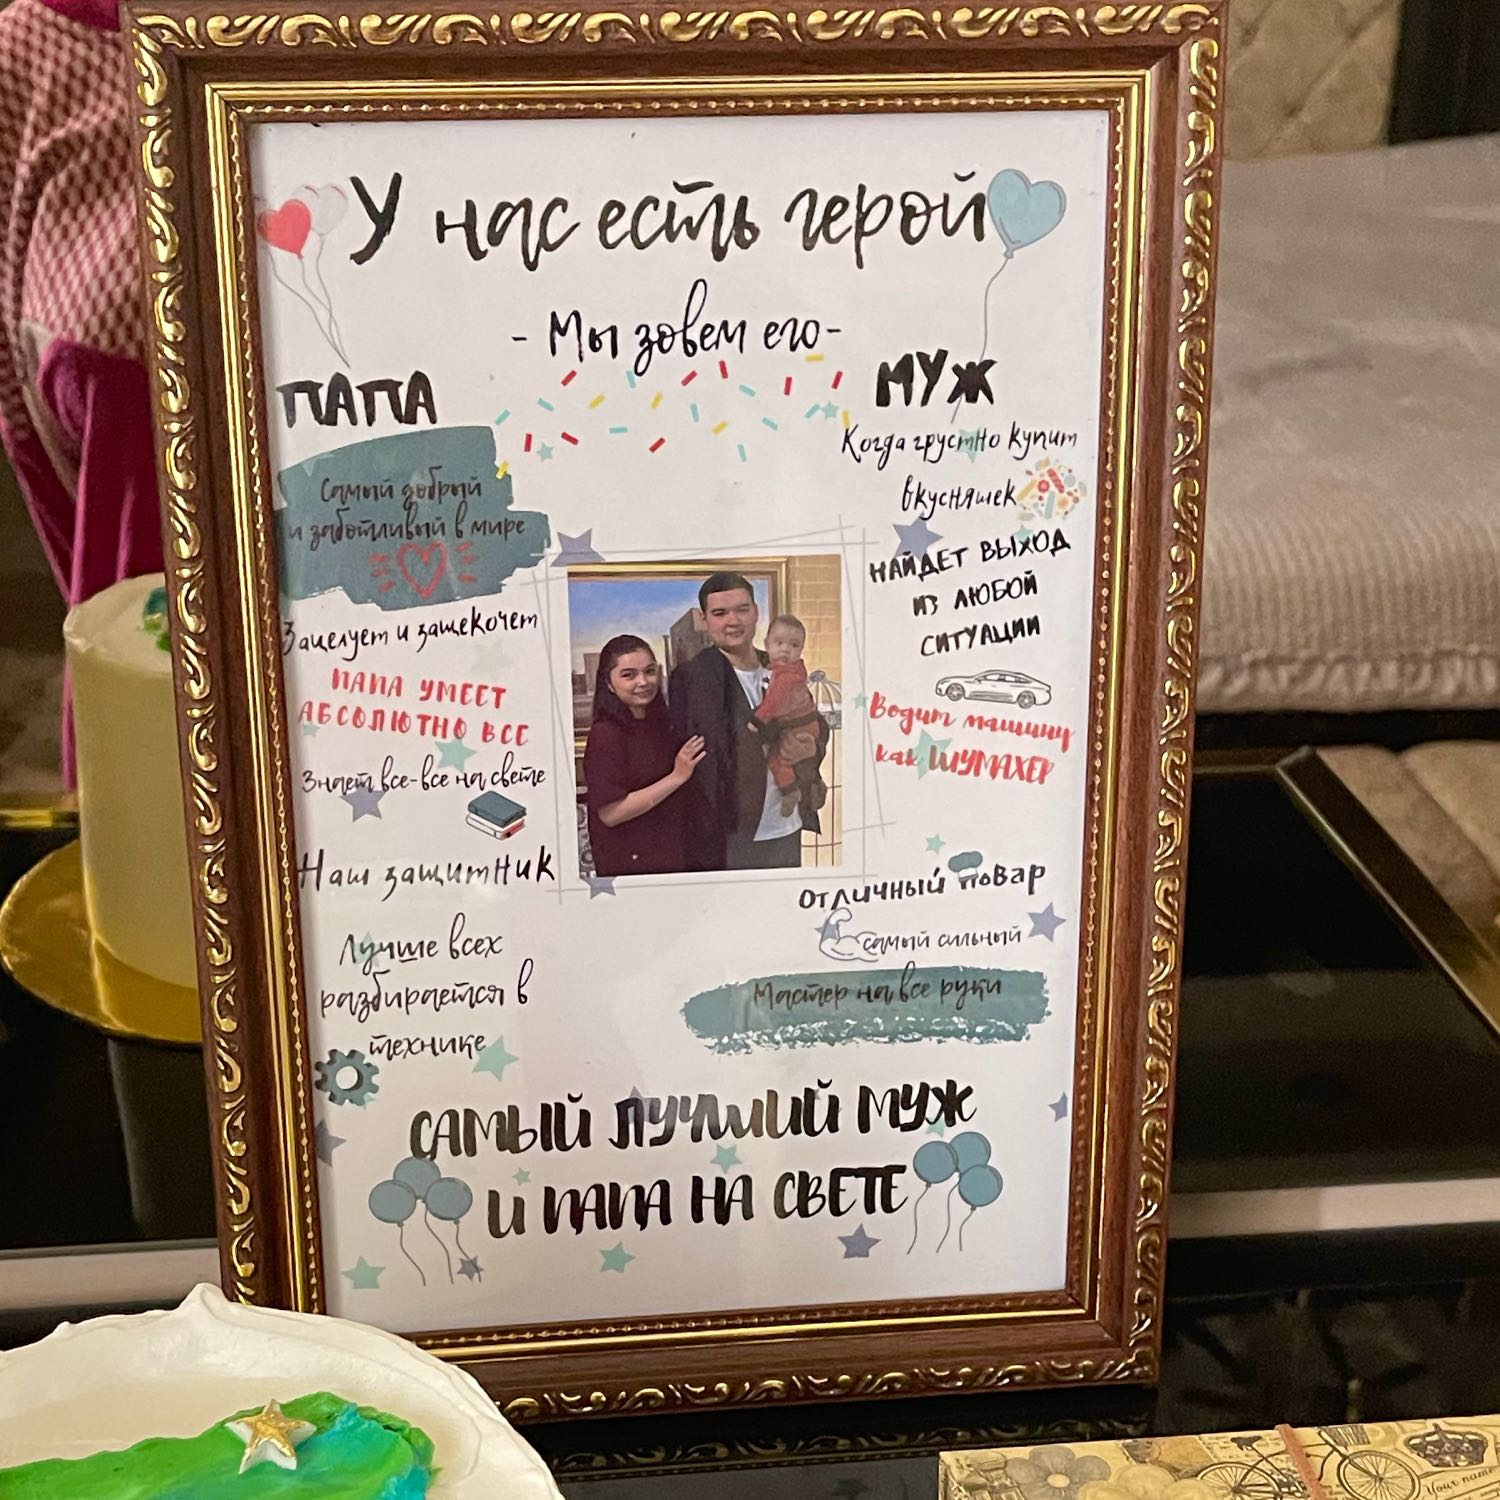 У нас есть герой
- Мы зовем его-
ПАПА
Самый добрый
и заботливый в мире
Зацелует и защекочет
ПАПА УМЕЕТ
АБСОЛЮТНО ВСЕ
Знает все-все на свете
Наш защитник
Лучше всех
разбирается в
технике
МУЖ
Когда грустно купит
вкусняшек
НАЙДЕТ ВЫХОД
ИЗ ЛЮБОЙ
СИТУАЦИИ
Водит машину
как ШУМАХЕР
Отличный повар
самый сильный
Мастер на все руки
САМЫЙ ЛУЧШИЙ МУЖ
И ПАПА НА СВЕТЕ
Your name